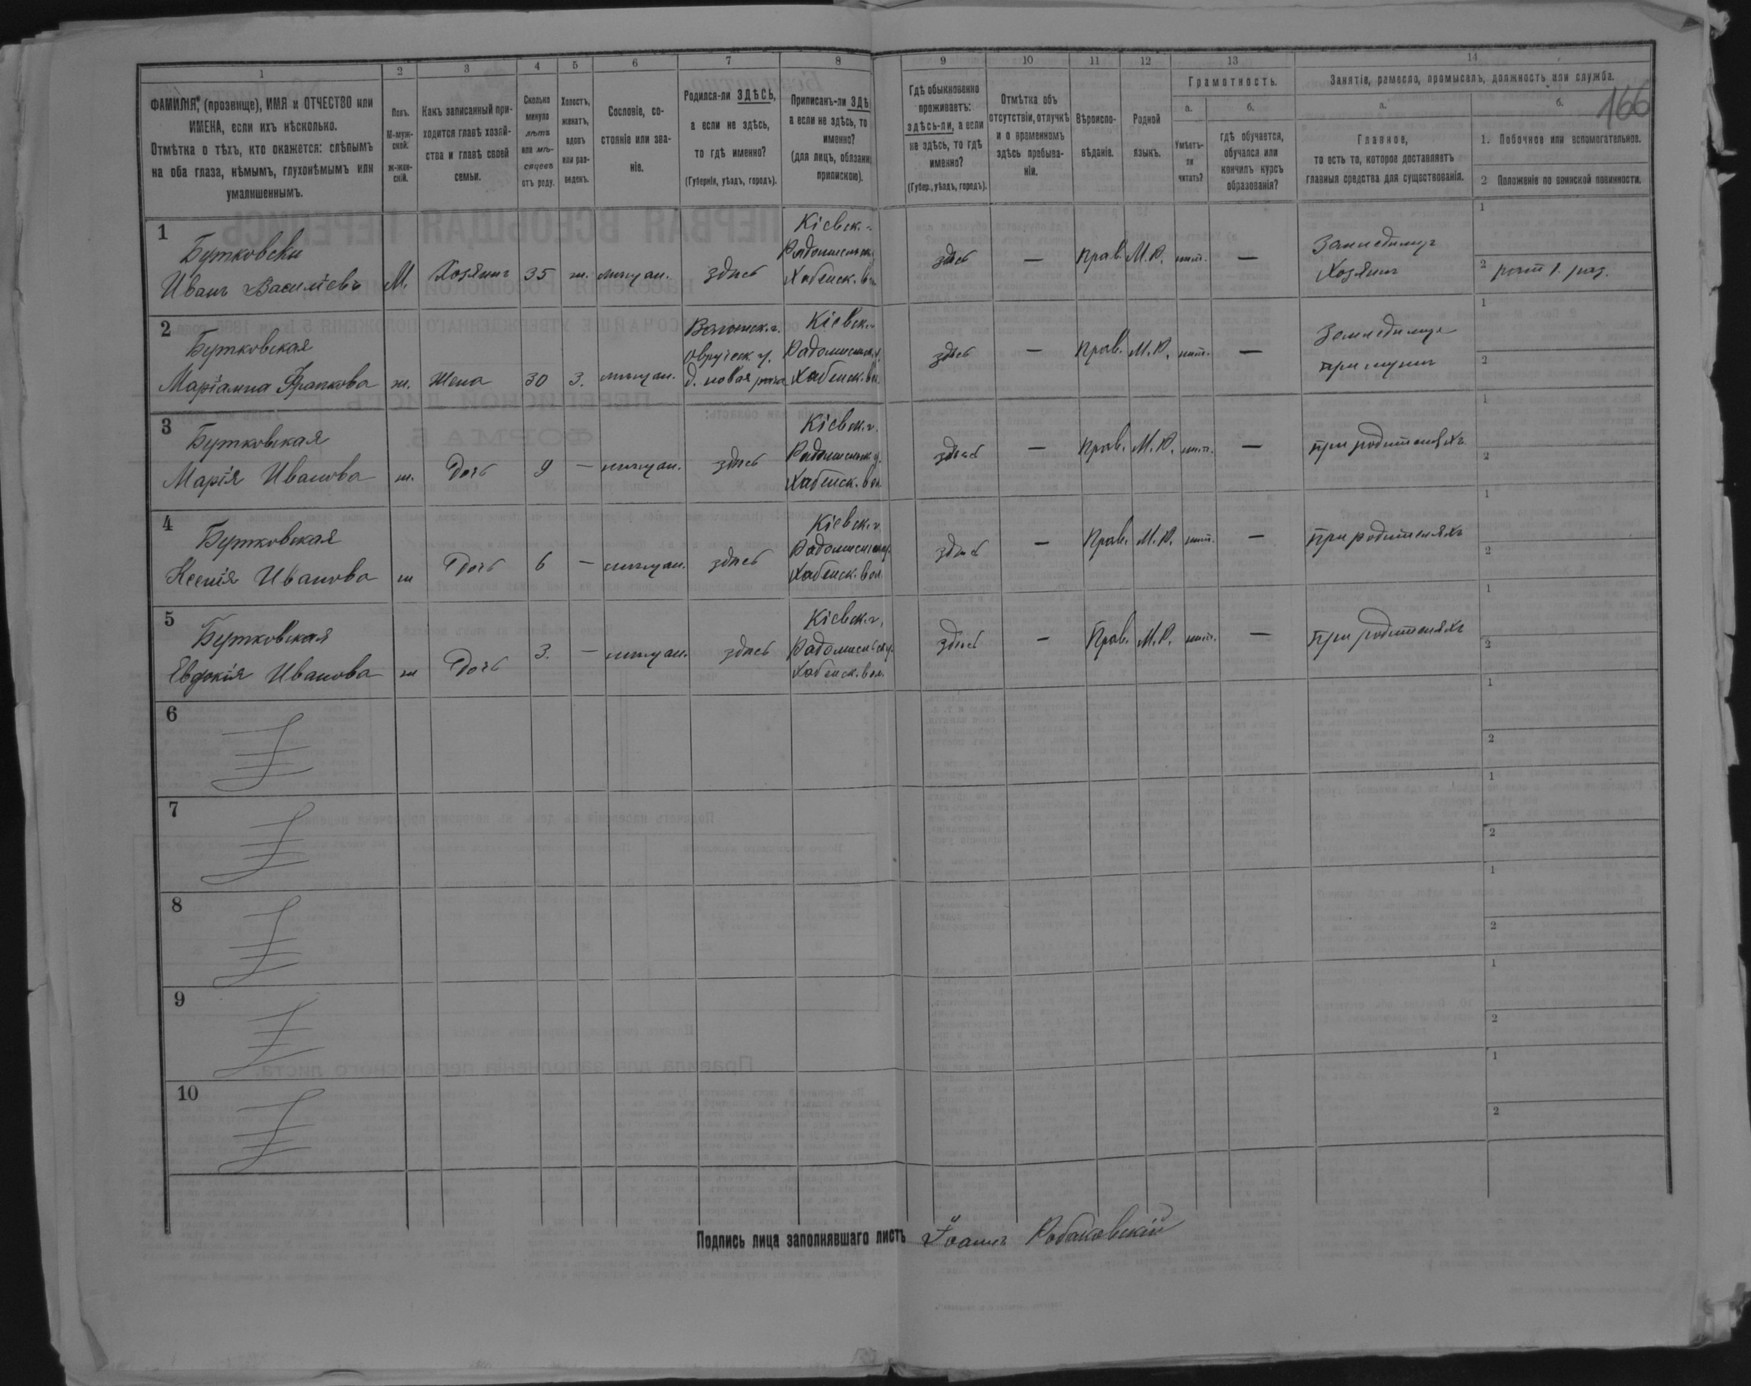 166
1 2 3 4 5 6 7 8 9 10 11 12 13 14
ФАМИЛІЯ, (прозвище), ИМЯ и ОТЧЕСТВО или
ИМЕНА, если ихъ нѣсколько.
Отмѣтка о тѣхъ, кто окажется: слѣпымъ
на оба глаза, нѣмымъ, глухонѣмымъ или
умалишеннымъ.
Полъ.
М-муж-
ской.
ж-жен-
скій.
Какъ записанный при-
ходится главѣ хозяй-
ства и главѣ своей
семьи.
Сколько
минуло
лѣтъ
или мѣ-
сяцевъ
отъ роду.
Холостъ,
женатъ,
вдовъ
или раз-
веденъ.
Сословіе, со-
стояніе или зва-
ніе.
Родился-ли ЗДѢСЬ,
а если не здѣсь,
то гдѣ именно?
(Губернія, уѣздъ, городъ).
Приписанъ-ли ЗДѢ
а если не здѣсь, то
именно?
(для лицъ, обязан
припискою).
Гдѣ обыкновенно
проживаетъ:
здѣсь-ли, а если
не здѣсь, то гдѣ
именно?
(Губер., уѣздъ, городъ).
Отмѣтка объ
отсутствіи, отлучкѣ
и о временномъ
здѣсь пребыва-
ніи.
Вѣроиспо-
вѣданіе.
Родной
языкъ.
Грамотность.
а.
Умѣетъ-
ли
читать?
б.
гдѣ обучается,
обучался или
кончилъ курсъ
образованія?
Занятія, ремесло, промыселъ, должность или служба.
а.
Главное,
то есть то, которое доставляетъ
главныя средства для существованія.
б.
1. Побочное или вспомогательное.
2 Положеніе по воинской повинности.
1
Бутковски
Иванъ Василіевъ М. Хозяинъ 35 ж. мѣщан. здѣсь
Кіевск. г.
Радомысльск. у.
Хабенск. в
здѣсь — Прав. М.Р. нѣт.
Земледѣлецъ
Хозяинъ
1
2 ратн 1. раз.
2
Бутковская
Маріанна Францкова ж. Жена 30 З. мѣщан.
Волынск. г.
Овручск у.
д. новая
Кіевск. г.
Радомысльск. у.
Хабенск. вол
здѣсь — Прав. М.Р. нѣт. —
Земледѣлец
при мужѣ
1
2
3
Бутковская
Марія Иванова ж. Дочь 9 — мѣщан. здѣсь
Кіевск. г.
Радомысльск у.
Хабенск. вол
здѣсь — Прав. М.Р. нѣт. — при родителяхъ
1
2
4
Бутковская
Ксенія Иванова ж Дочь 6 — мѣщан. здѣсь
Кіевск. г
Радомысльск у.
Хабенск. вол
здѣсь — Прав. М.Р. нѣт. — при родителяхъ
1
2
5
Бутковская
Евдокія Иванова ж Дочь 3. — мѣщан. здѣсь
Кіевск. г.
Радомысльск у.
Хабенск. вол
здѣсь — Прав. М.Р. нѣт. — при родителяхъ
1
2
6
1
2
7
1
2
8
1
2
9
1
2
10
1
2
Подпись лица заполнявшаго листъ Іоаннъ Робаковскій